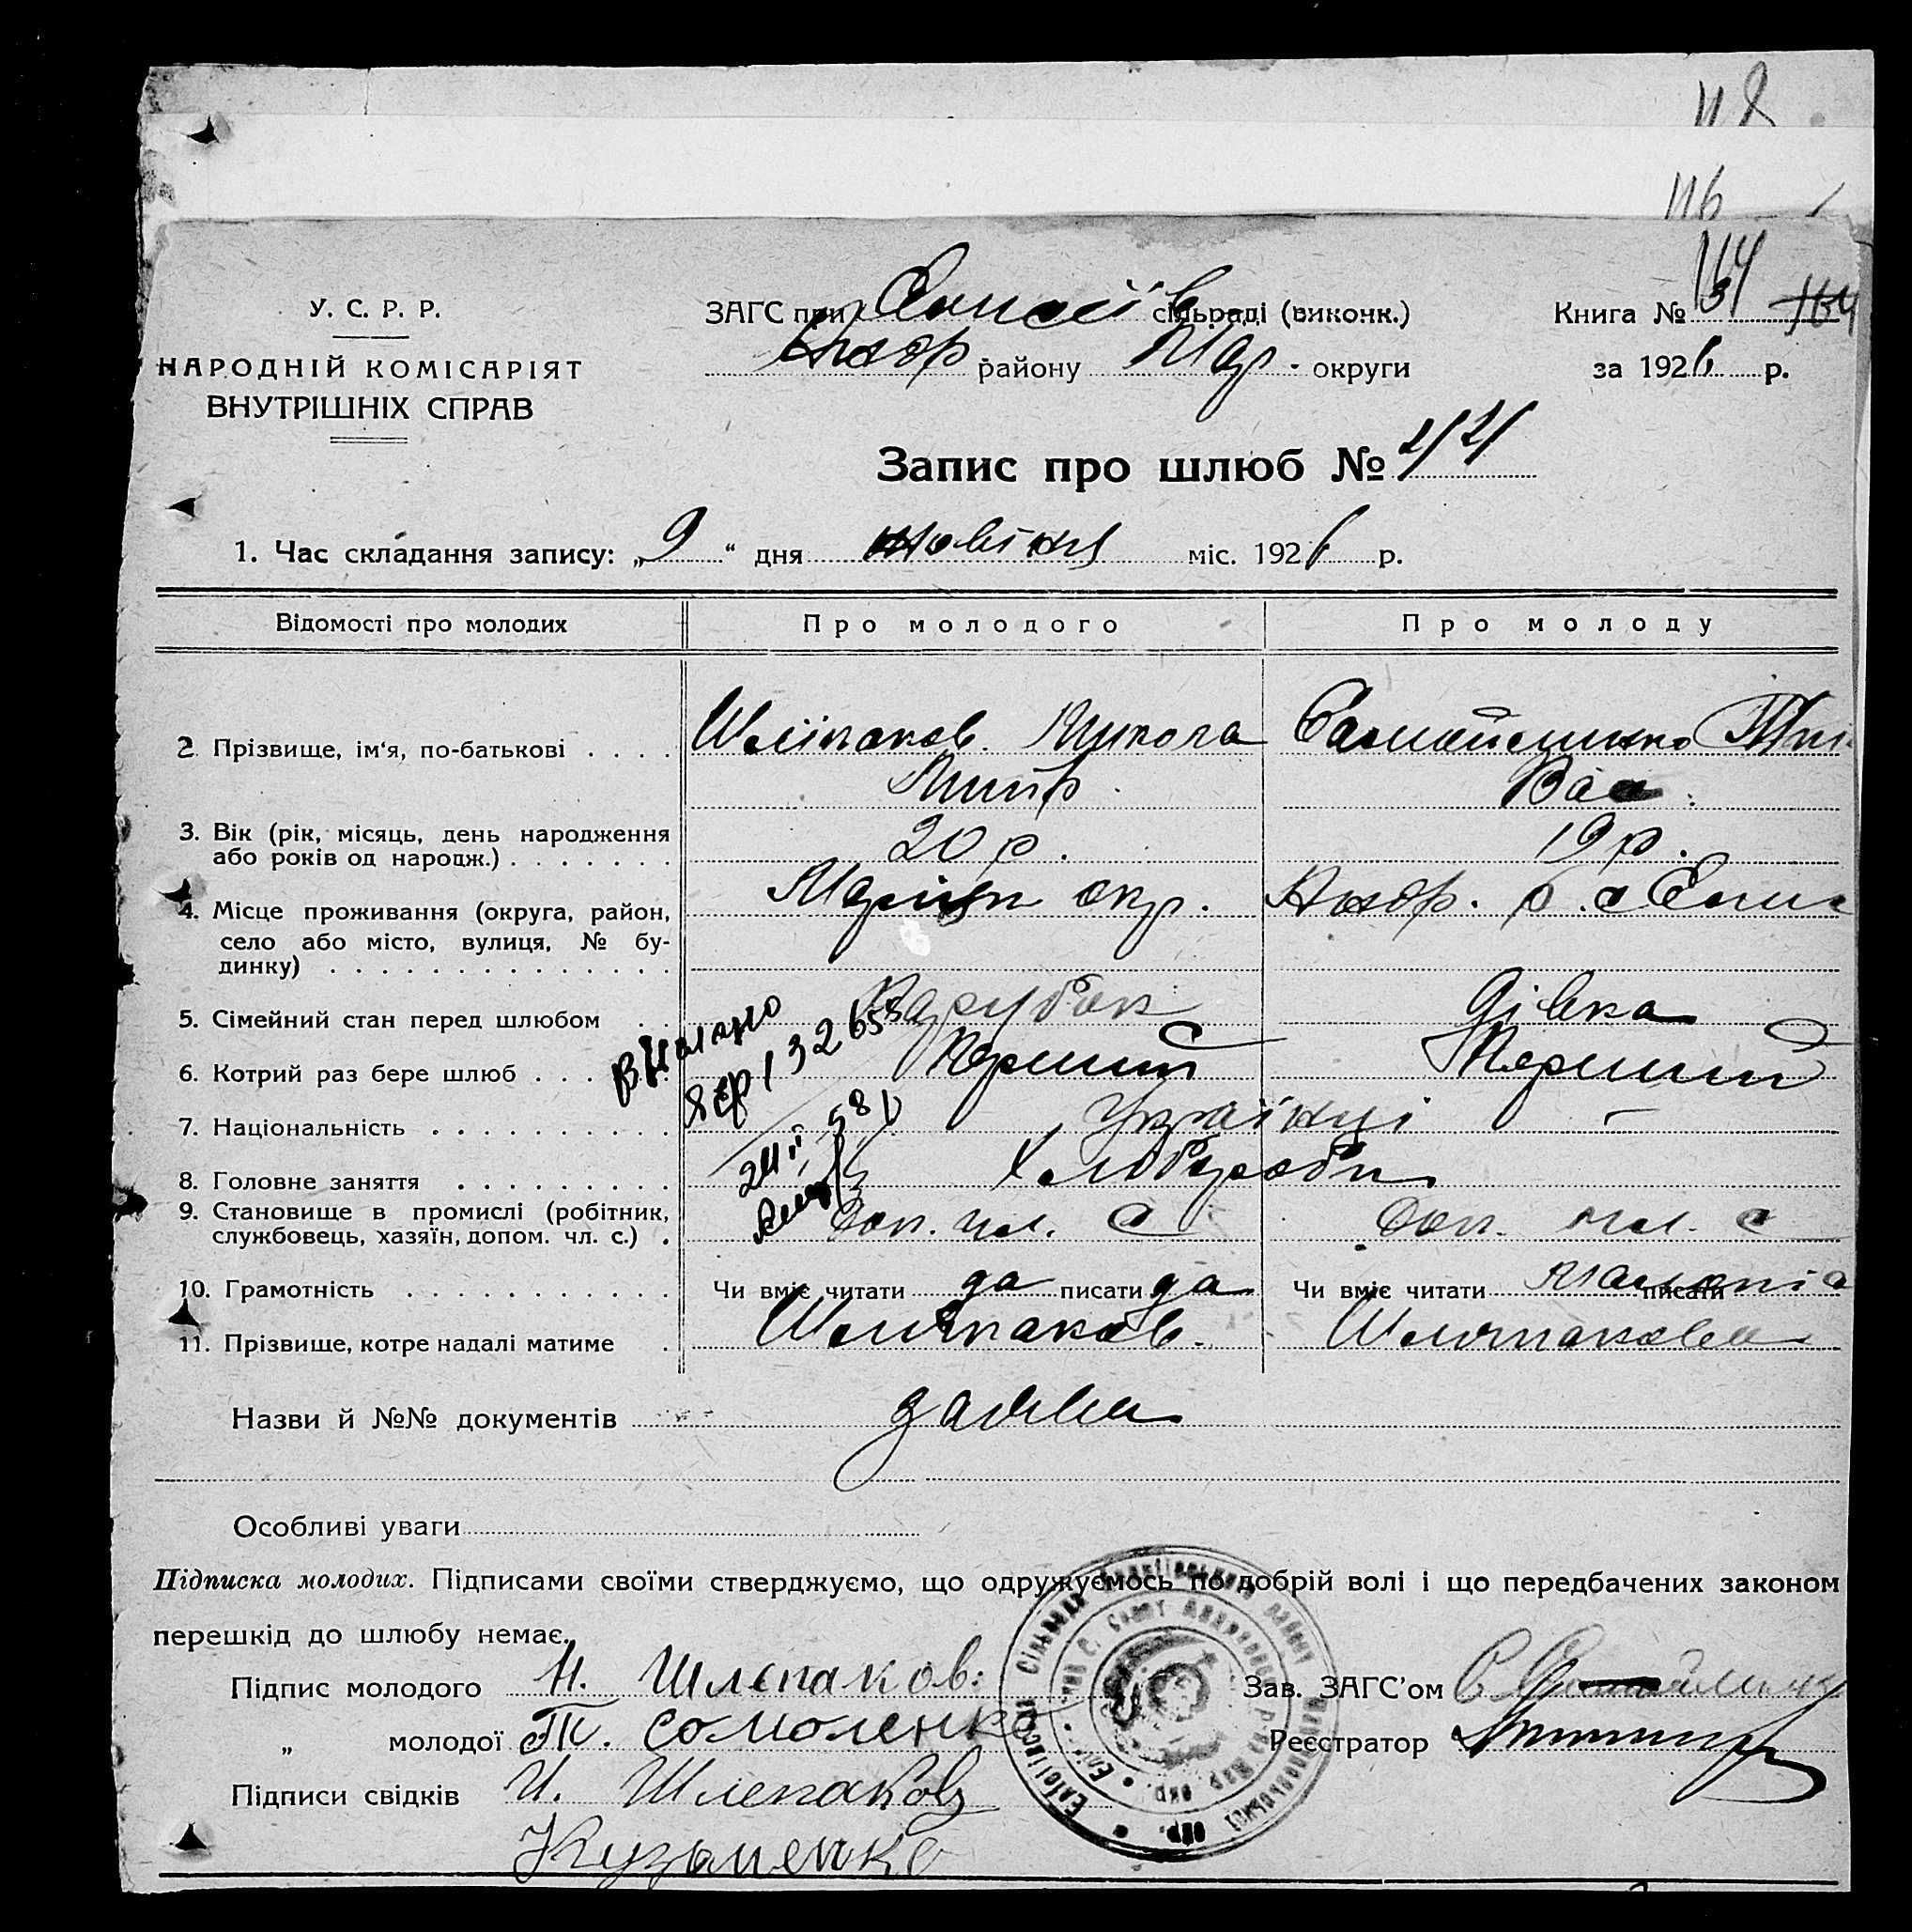 118
116
164
У. С. Р. Р.
НАРОДНІЙ КОМІСАРІЯТ
ВНУТРІШНІХ СПРАВ
ЗАГС при сільраді (виконк.)
Андр району Мар. округи
Книга №
за 1926 р.
Запис про шлюб №
1. Час складання запису: „9“ дня жовтня міс. 1926 р.
Відомості про молодих Про молодого Про молоду
2. Прізвище, ім'я, по-батькові . . . . Шліпаков. Микола
Вас.
3. Вік (рік, місяць, день народження
або років од народж.) . . . . . . . 20 р. 19 р.
4. Місце проживання (округа, район, Маріюп окр. Андр. р. с Елис
село або місто, вулиця, № бу-
динку) . . . . . . . . . . . . . .
5. Сімейний стан перед шлюбом . . Парубок Дівка
6. Котрий раз бере шлюб . . . . . Перший Перший
7. Національність . . . . . . . . . Українці
8. Головне заняття . . . . . . . . Хлібороби
9. Становище в промислі (робітник,
службовець, хазяїн, допом. чл. с.) . Доп. чл. с Доп. чл. с
10. Грамотність . . . . . . . . . . . Чи вміє читати да писати да Чи вміє читати писати
11. Прізвище, котре надалі матиме . Шляпаков. Шляпакова
Назви й №№ документів заява
Особливі уваги
Підписка молодих. Підписами своїми стверджуємо, що одружуємось по добрій волі і що передбачених законом
перешкід до шлюбу немає.
Підпис молодого Н. Шлепаков.
„ молодої Т. Сомоленко
Підписи свідків И. Шлепаков
Кузьменко
Зав. ЗАГС'ом
Реєстратор